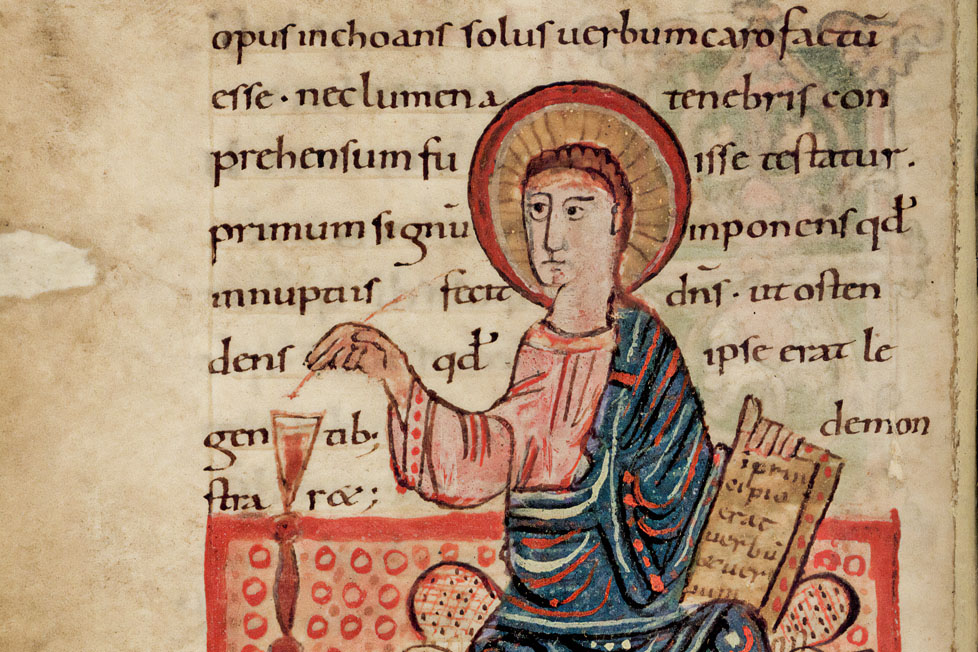 opus inchoans solus uerbum caro factū
esse · nec lumen a tenebris con
prehensum fuisse testatur .
primum signū inponens qđ
in nuptiis fecit dn̄s · ut osten
dens qđ ipse erat le
gentib; demon
straræ;
i prin
cipio
erat
uerbū
& uer
bum